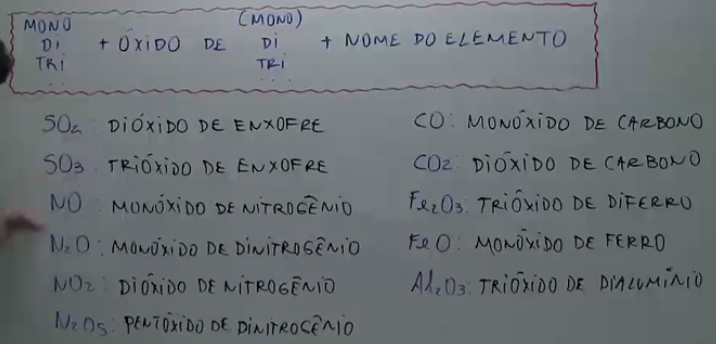 MONO
DI
TRI
...
+ ÓXIDO DE
(MONO)
DI
TRI
...
+ NOME DO ELEMENTO
SO2: DIÓXIDO DE ENXOFRE
SO3: TRIÓXIDO DE ENXOFRE
NO: MONÓXIDO DE NITROGÊNIO
N2O: MONÓXIDO DE DINITROGÊNIO
NO2: DIÓXIDO DE NITROGÊNIO
N2O5: PENTÓXIDO DE DINITROGÊNIO
CO: MONÓXIDO DE CARBONO
CO2: DIÓXIDO DE CARBONO
Fe2O3: TRIÓXIDO DE DIFERRO
FeO: MONÓXIDO DE FERRO
Al2O3: TRIÓXIDO DE DIALUMÍNIO